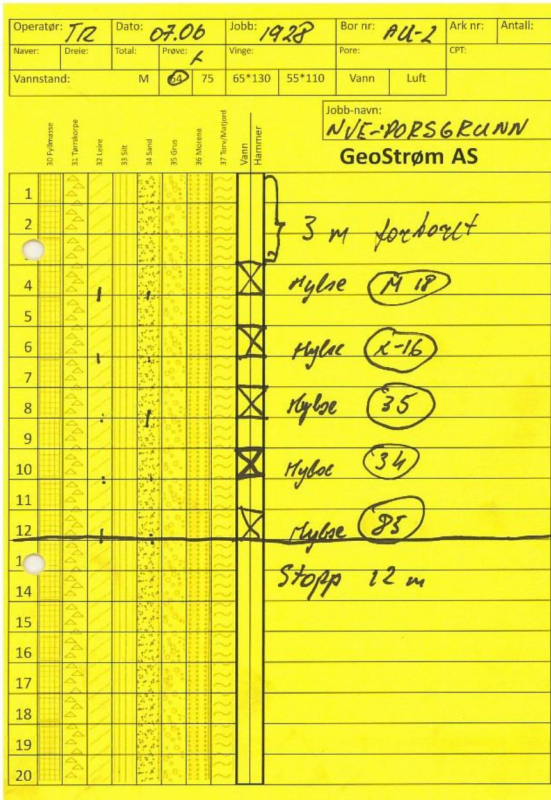 Operatør: TR Dato: 07.06 Jobb: 1928 Bor nr: AU-2 Ark nr: Antall:
Naver: Dreie: Total: Prøve: X Vinge: Pore: CPT:
Vannstand: M 54 75 65*130 55*110 Vann Luft
Jobb-navn:
NVE-PORSGRUNN
GeoStrøm AS
30 Fyllmasse 31 Tørrskorpe 32 Leire 33 Silt 34 Sand 35 Grus 36 Morene 37 Torv/Matjord Vann Hammer
1
2 3 m forboret
4 Hylse M 18
5
6 Hylse K-16
7
8 Hylse 35
9
10 Hylse 34
11
12 Hylse 85
1 Stopp 12 m
14
15
16
17
18
19
20